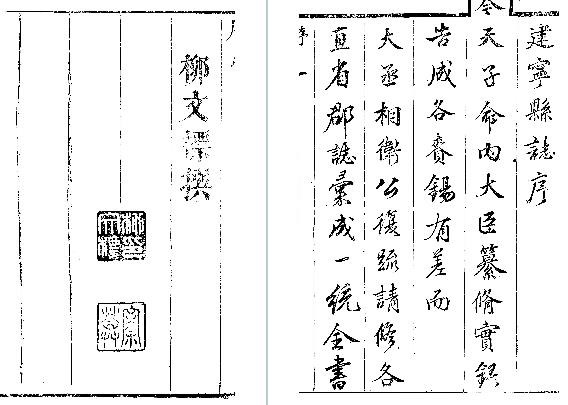 建寧縣誌序
今
天子命內大臣纂脩實錄
告成各賚錫有差而
大丞相衛公復疏請修各
直省郡誌彙成一統全書
序 一
柳文標撰